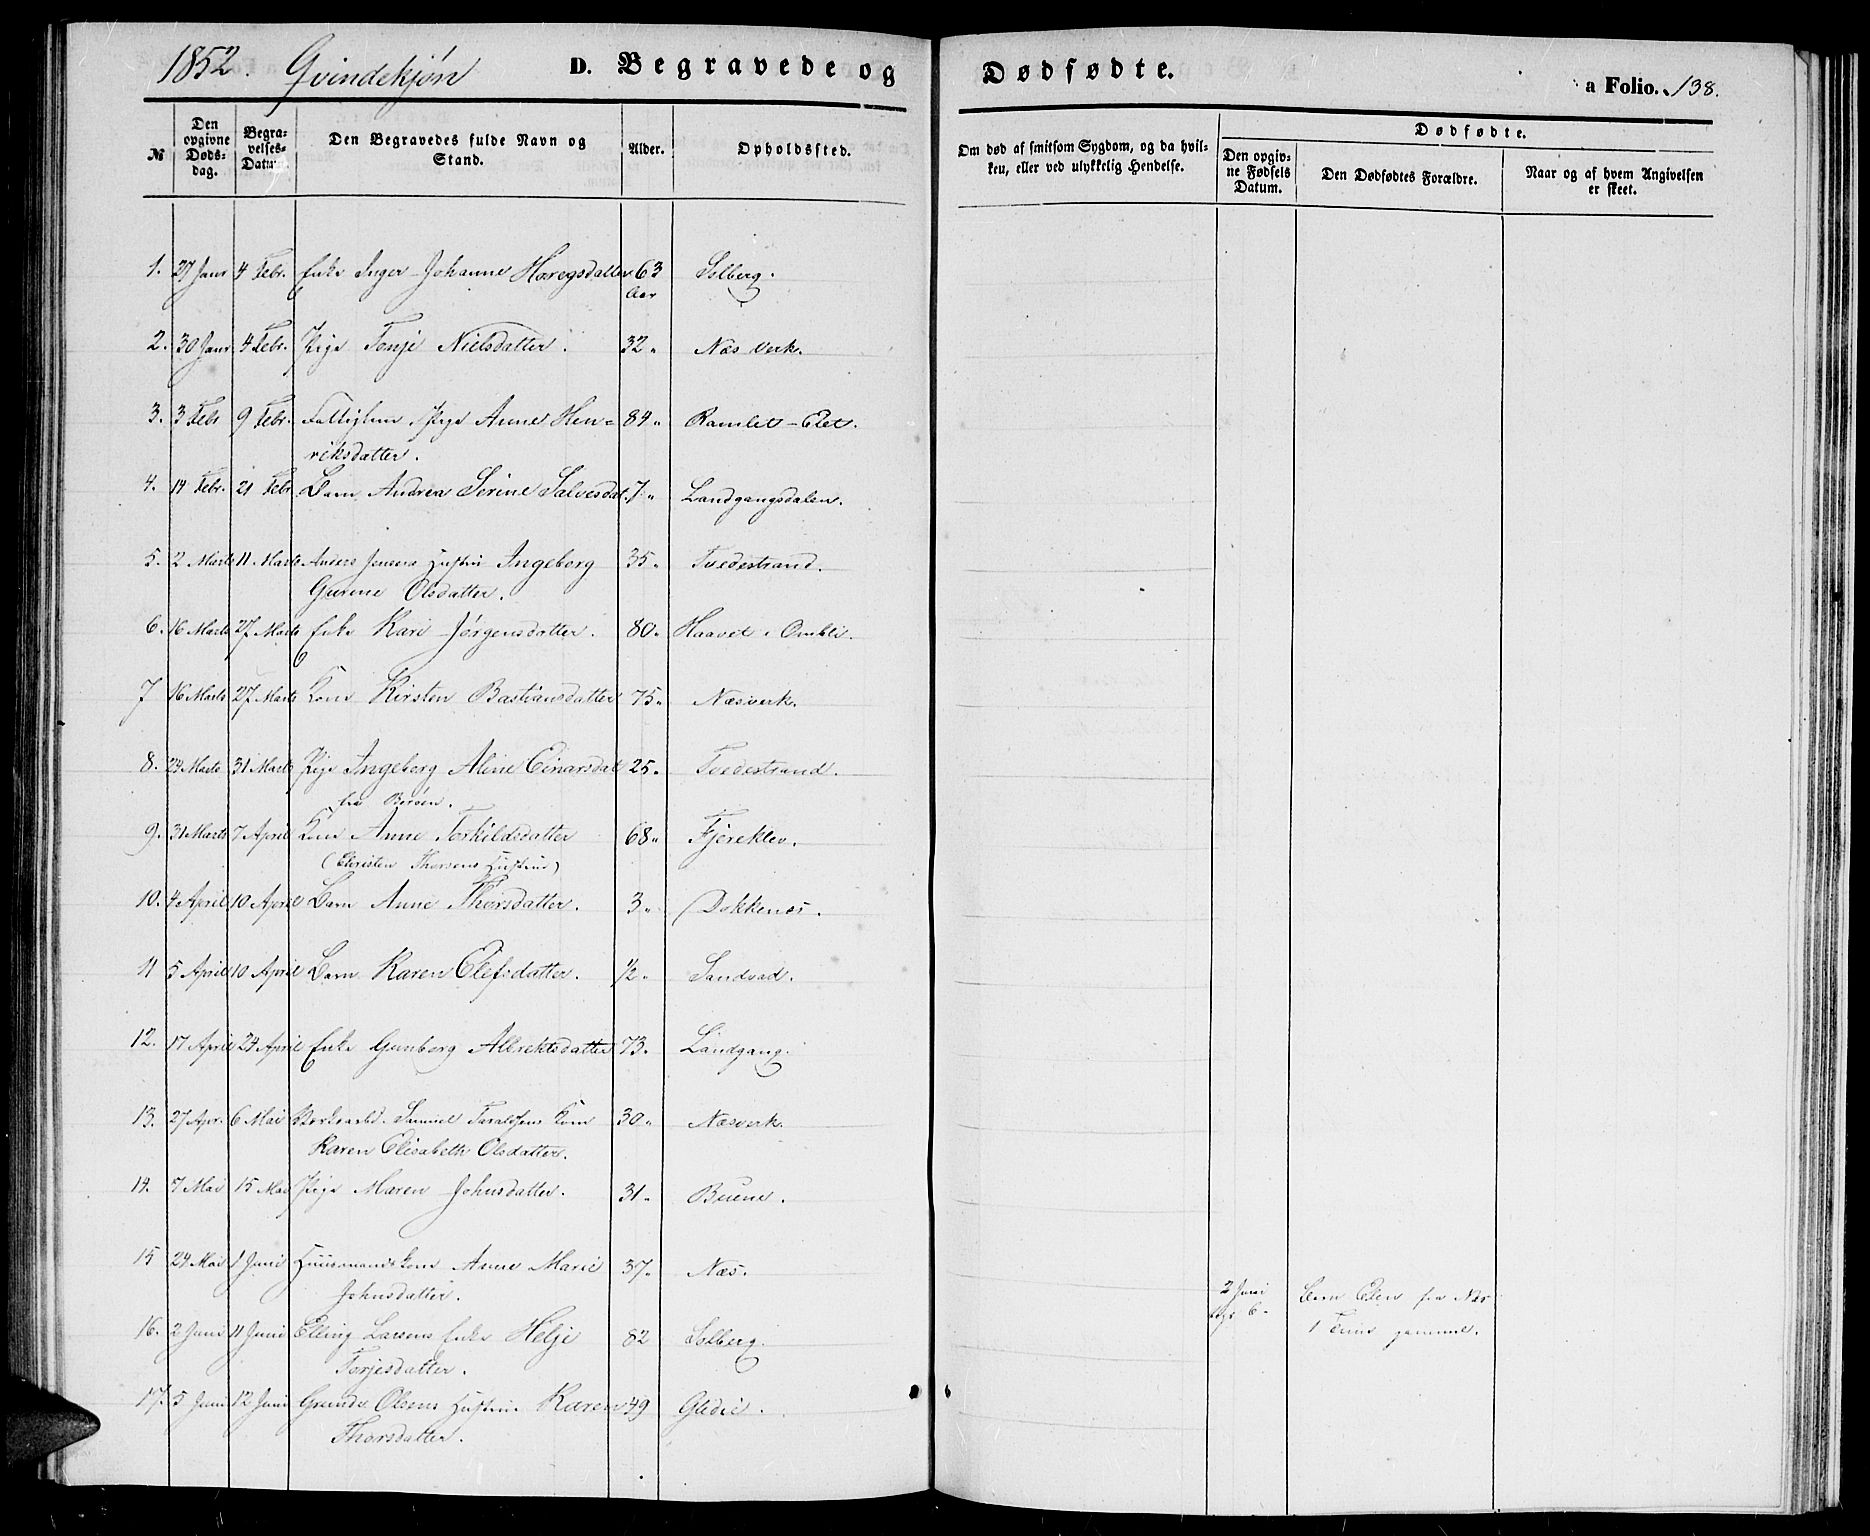 1852. Qvindekjøn D. Begravede og Dødfødte. a Folio. 138.
№ Den opgivne Døds-dag. Begra-velses-Datum. Den Begravedes fulde Navn og Stand. Alder. Opholdssted. Om død af smitsom Sygdom, og da hvil-ken, eller ved ulykkelig Hendelse. Dødfødte. Den opgiv-ne Fødsels Datum. Den Dødfødtes Forældre. Naar og af hvem Angivelsen er skeet.
1. 27 Janr 4 Febr. Enke Inger Johanne 63 Aar Solberg.
2. 30 Janr 4 Febr. Pige Tonje Nielsdatter. 32 " Næs Verk.
3. 3 Febr 9 Febr. Pige Anne Hen=
riksdatter. 84 " Ramlet-Elet.
4. 14 Febr. 21 Febr Barn Andrea Serine Salvesdat. 7 " Landgangsdalen.
5. 2 Marts 11 Marts Anders Jensens Hustru Ingeborg
Gurine Olsdatter. 35 " Tvedestrand.
6. 16 Marts 27 Marts Enke Kari Jørgensdatter. 80 " Haavet i Ombli.
7 16 Marts 27 Marts Kone Kirsten Bastiansdatter 75 " Næsverk.
8. 24 Marts 31 Marts Pige Ingeborg Aline Einarsdat 25 " Tvedestrand.
fra Borøen.
9. 31 Marts 7 April Kone Anne Torkildsdatter 68 " Fjereklev.
(Christen Thorsens Hustrue)
10. 4 April 10 April Barn Anne Thorsdatter. 3 " Dokkenes.
11 5 April 10 April Barn Karen Olefsdatter. 1/2 " Sandvad.
12. 17 April 24 April Enke Gunborg Albrektsdatter 73 " Landgang.
13. 27 Apr. 6 Mai Samuel Taralsens Kone 30 " Næsverk.
Karen Elisabeth Olsdatter.
14. 7 Mai 15 Mai Pige Maren Johnsdatter. 31 " Buene.
15 24 Mai 1 Juni Huusmands Kone Anne Marie 37 " Næs.
Johnsdatter.
2 Juni Barn Elen fra Næs
6 1 Time gammel.
16. 2 Juni 11 Juni Elling Larsens Enke Helje 82 Solberg.
Torjesdatter.
17. 5 Juni 12 Juni Grunde Olsens Hustrue Karen 49 Glidie.
Thorsdatter.